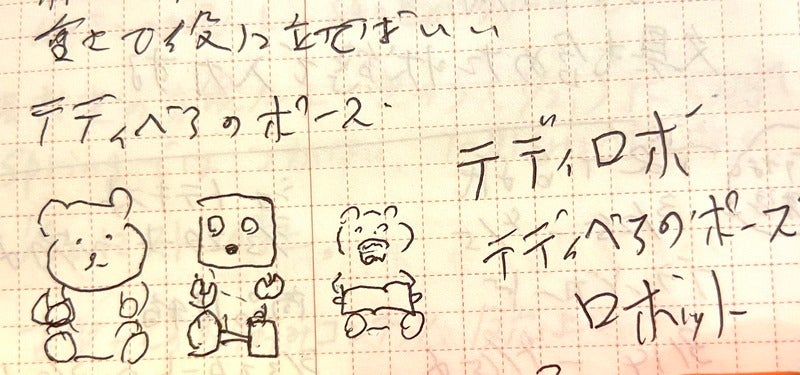 役に立てばいい
テディベアのポーズ
テディロボ
テディベアのポーズ
ロボット